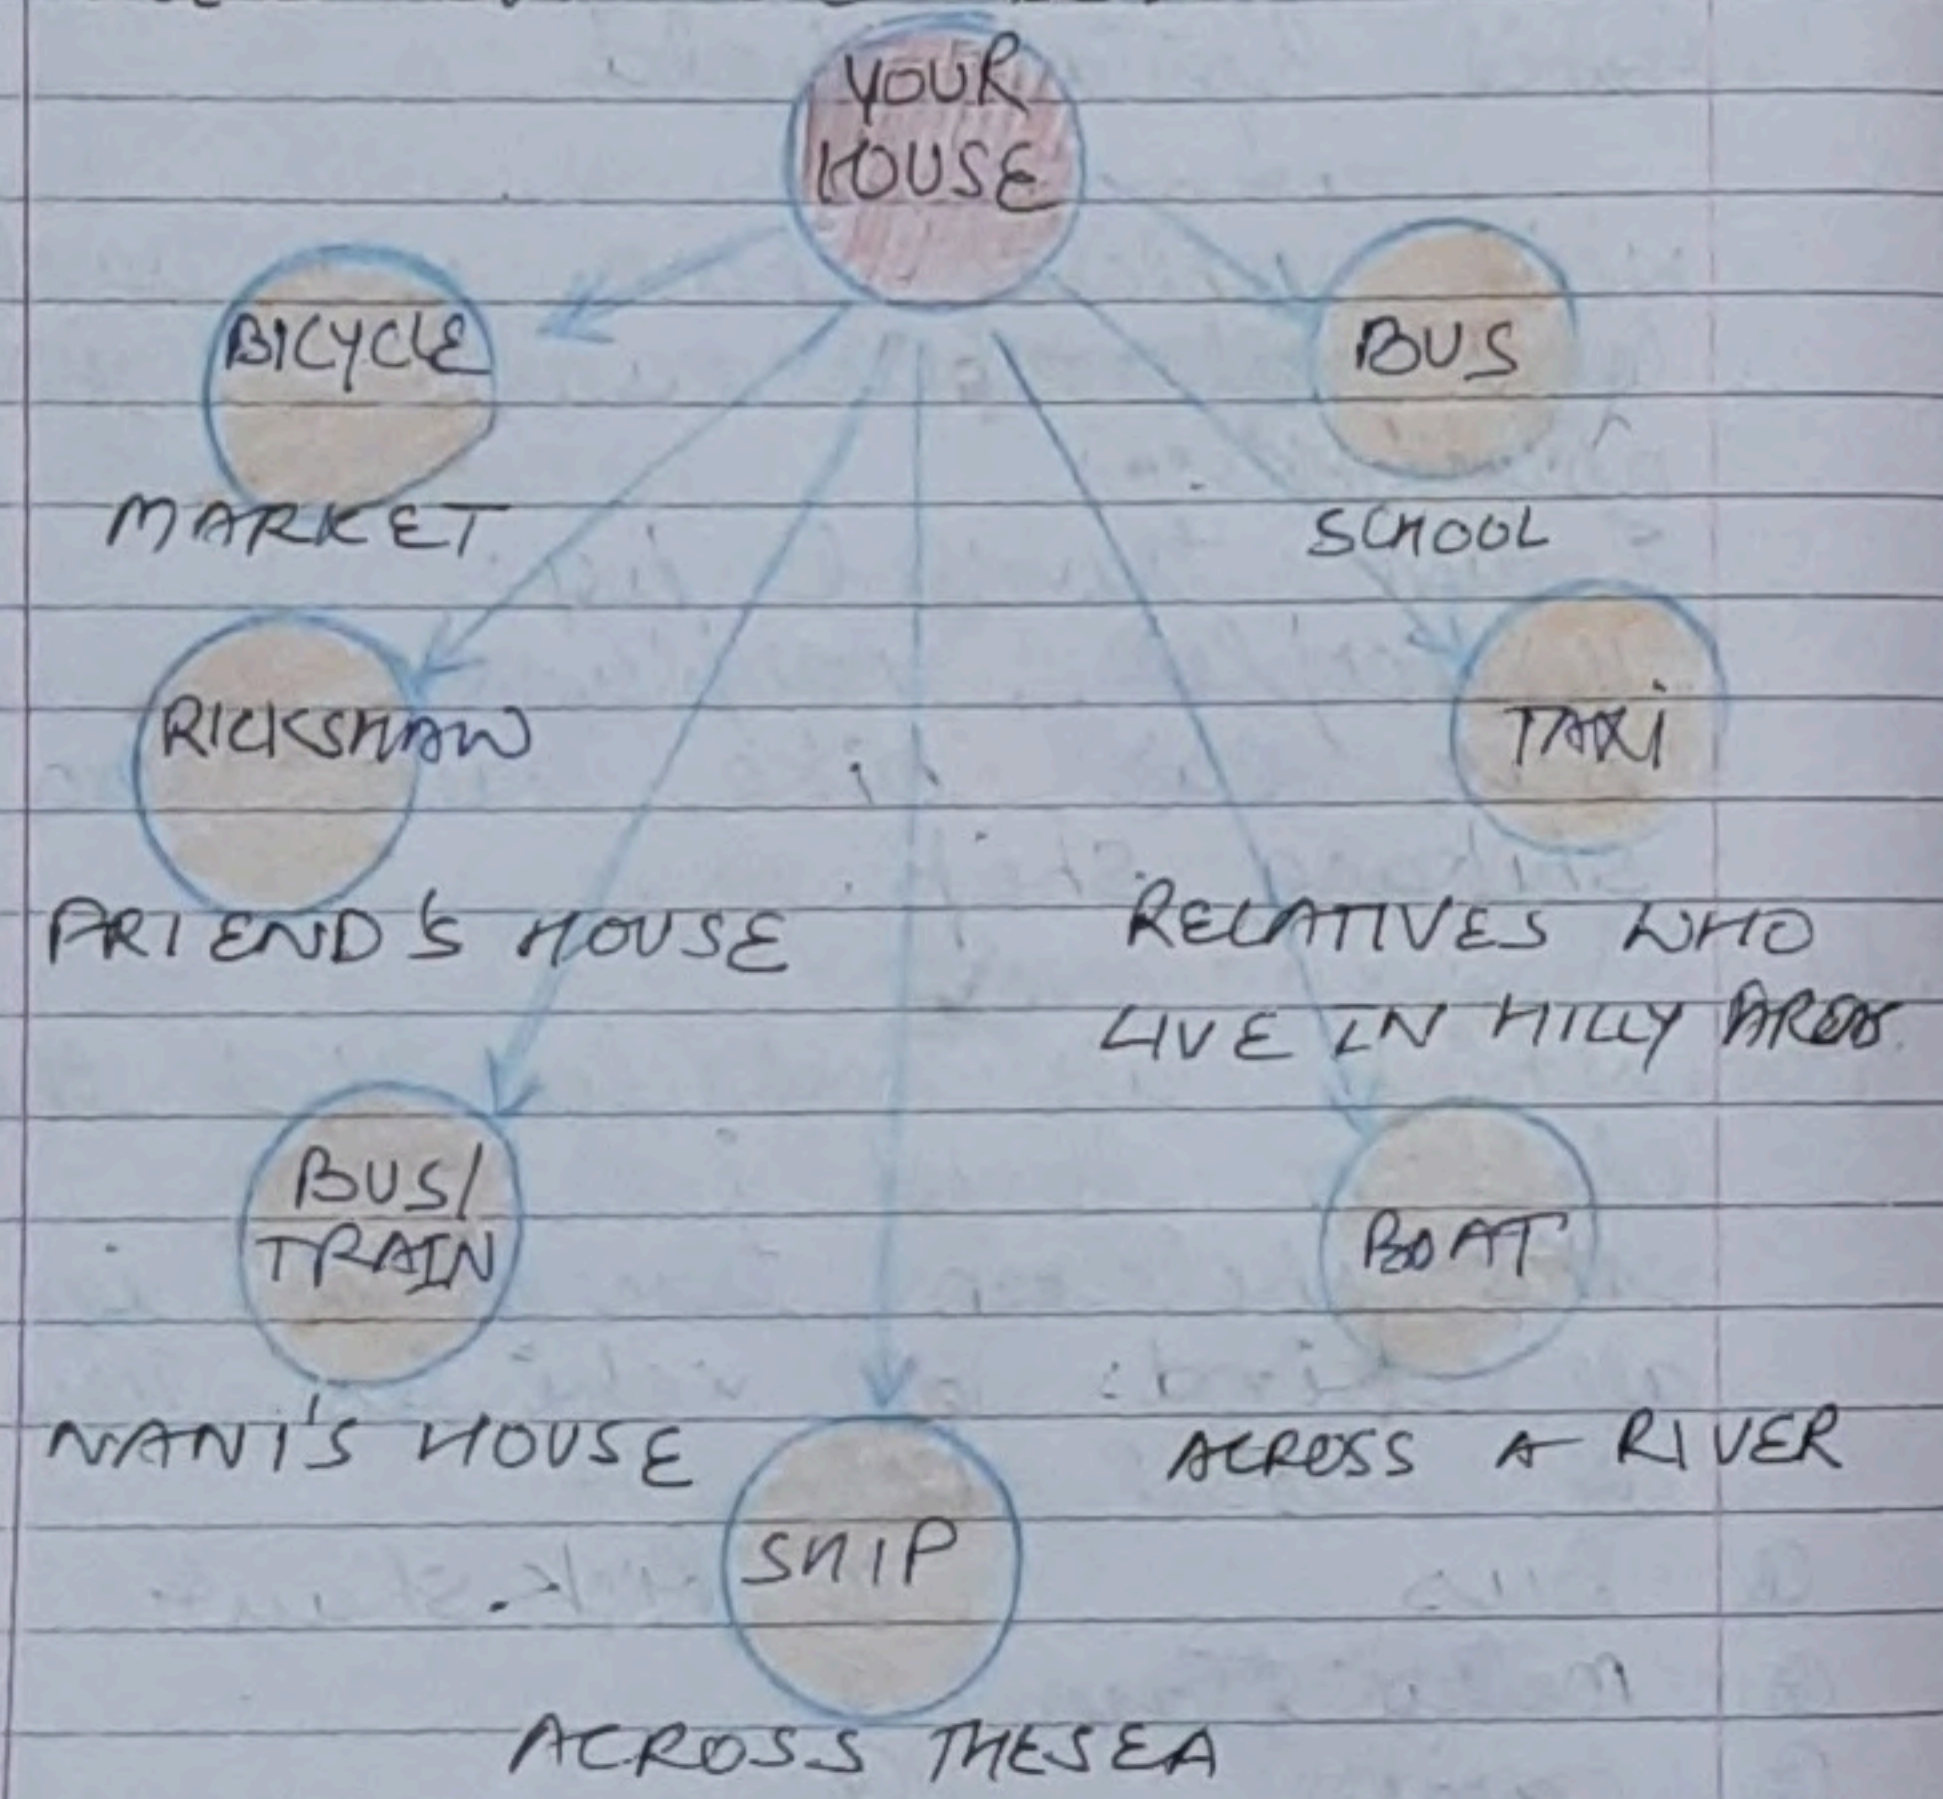 YOUR
HOUSE
BICYCLE
MARKET
BUS
SCHOOL
RICKSHAW
FRIEND'S HOUSE
TAXi
RELATIVES WHO
LIVE IN HILLY AREAS.
BUS/
TRAIN
NANI'S HOUSE
BOAT
ACROSS A RIVER
SHIP
ACROSS THE SEA